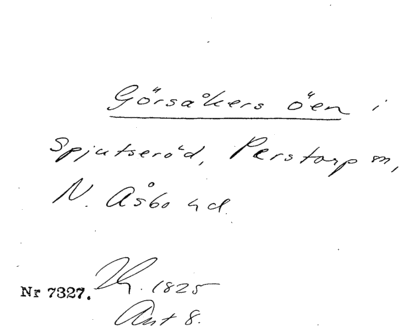 Görsåkers öen i
Spjutseröd, Perstorp sn,
N. Åsbo hd.
Nr 7327. 1825
Akt 8.